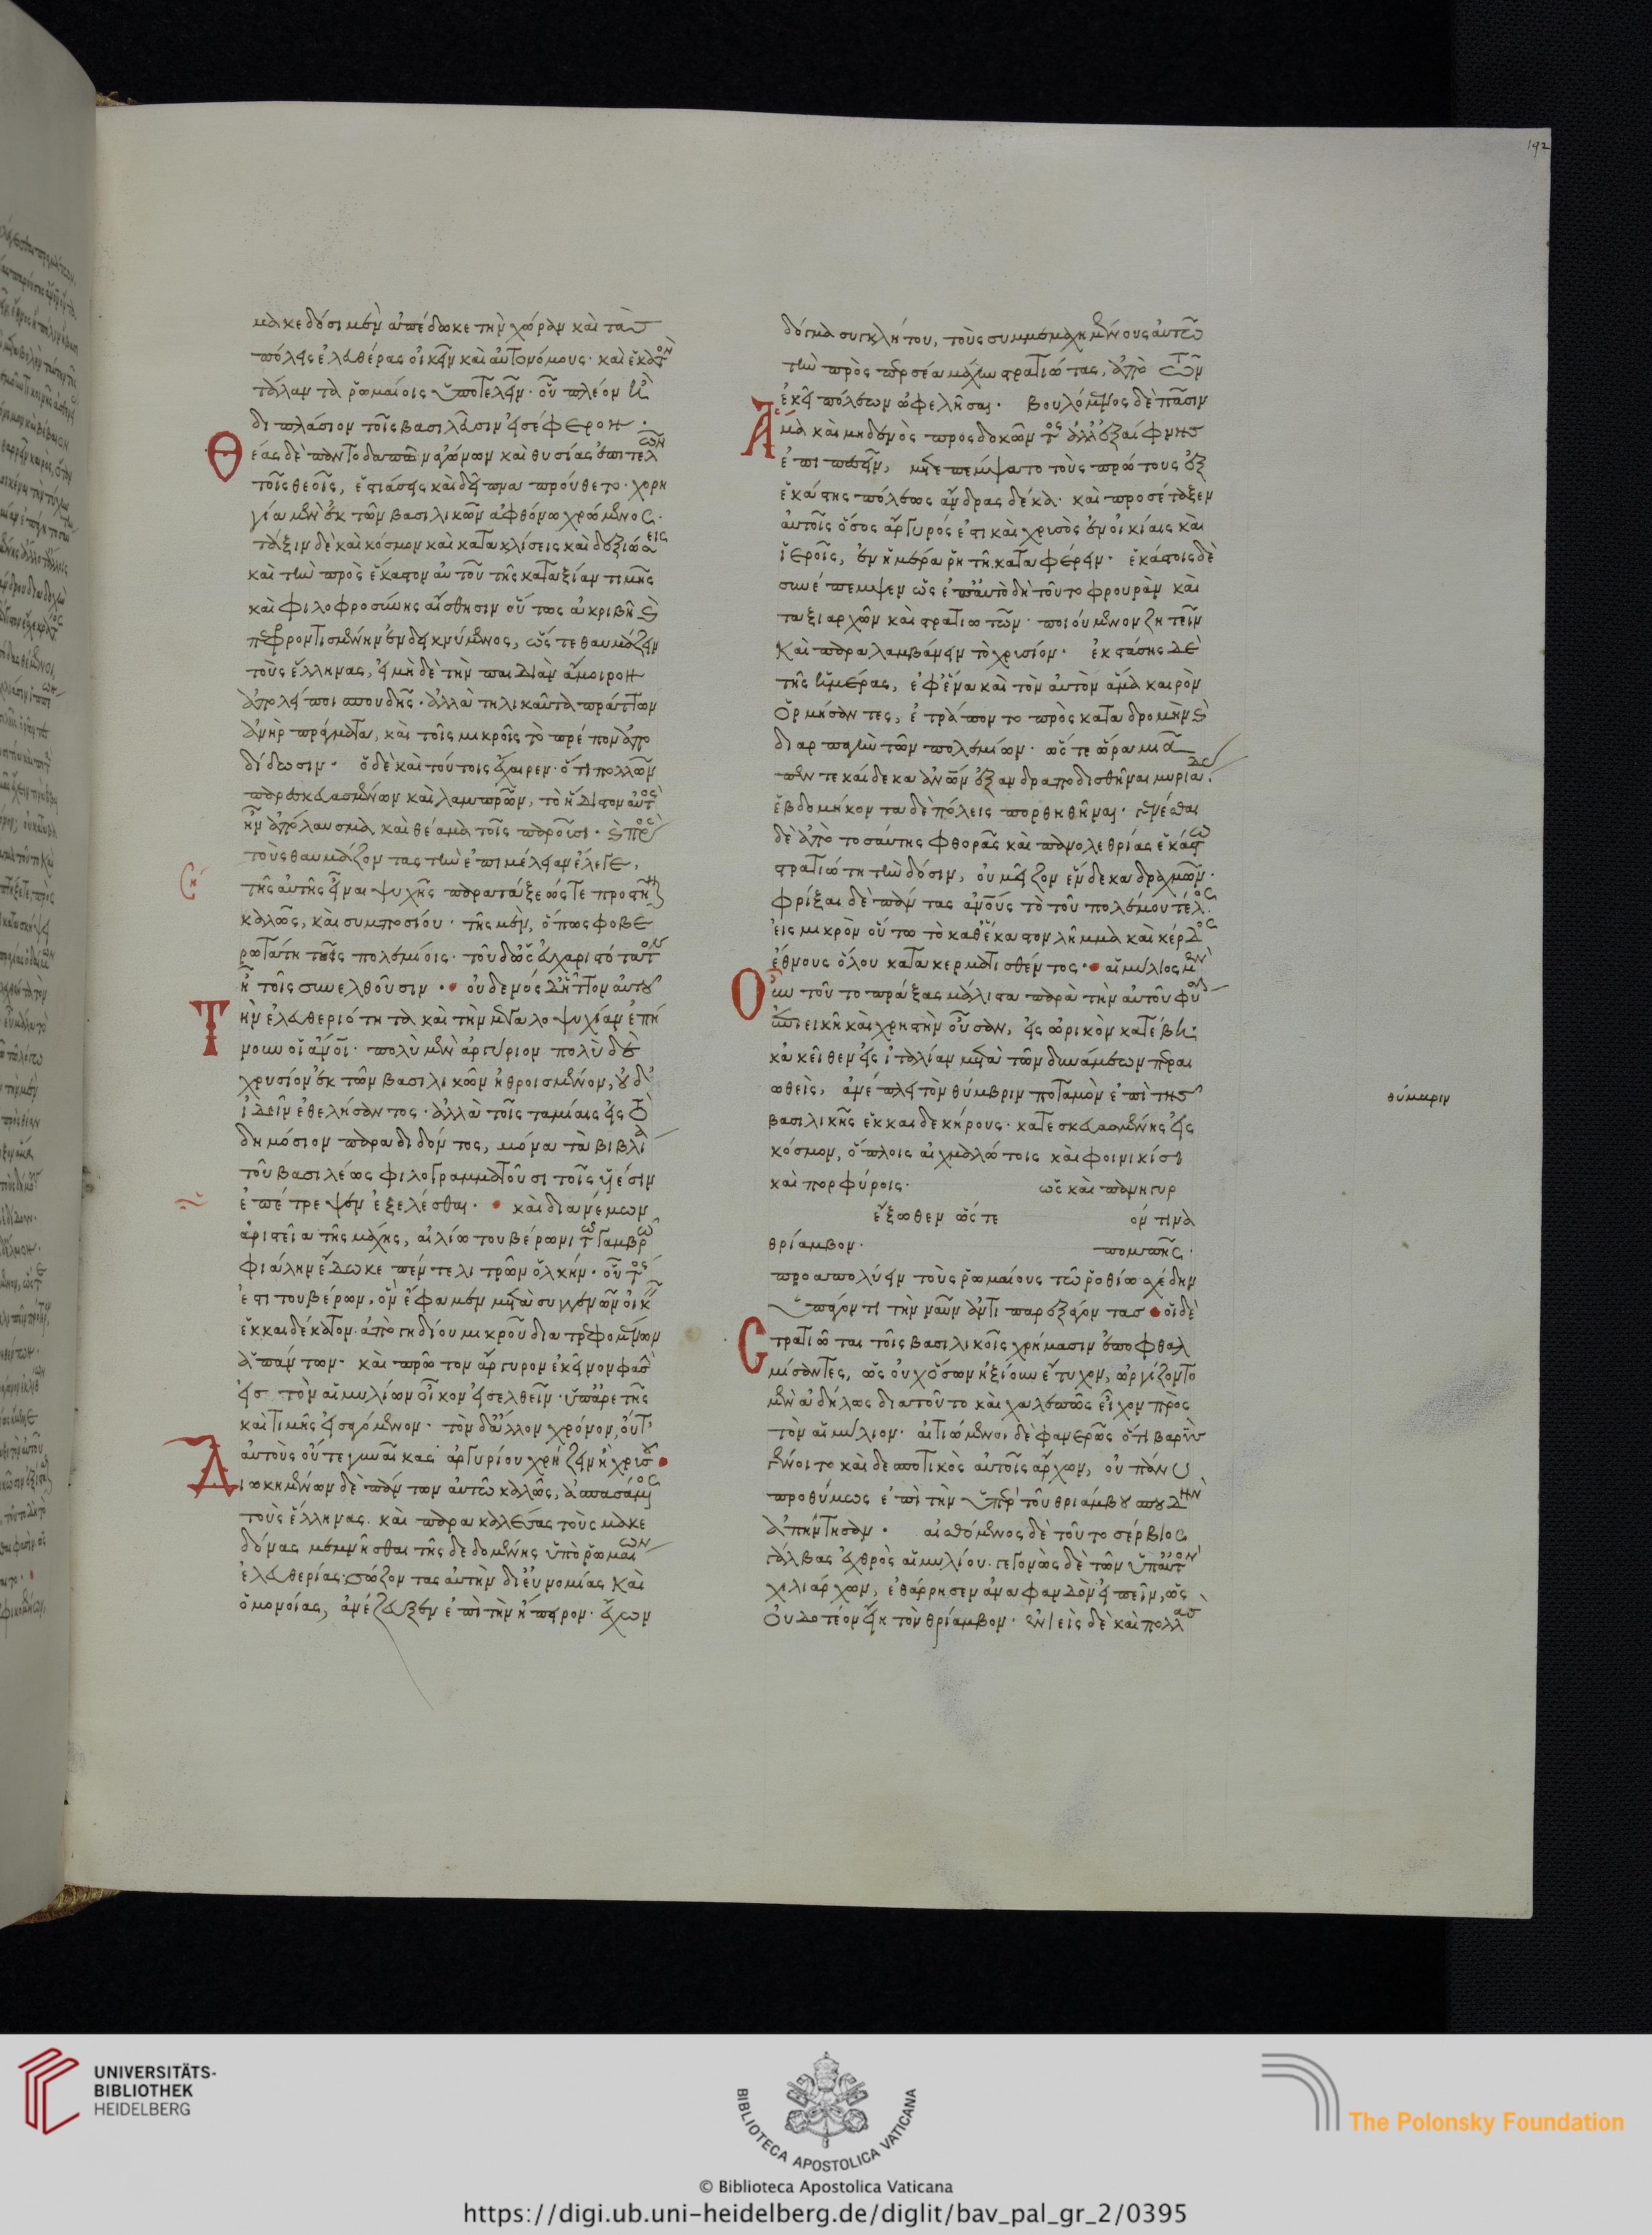 μακεδόσι μὲν ἀπέδωκε τὴν χώραν καὶ τὰς
πόλεις ἐλευθέρας οἰκεῖν καὶ αὐτονόμους· καὶ ἑκατὸν
τάλαντα ῥωμαίοις ὑποτελεῖν· οὗ πλέον ἢ
διπλάσιον τοῖς βασιλεῦσιν εἰσέφερον·
Θέας δὲ παντοδαπῶν ἀγώνων καὶ θυσίας ἐπιτελῶν
τοῖς θεοῖς, ἑστιάσεις καὶ δεῖπνα προύθετο· χορη
γία μὲν ἐκ τῶν βασιλικῶν ἀφθόνω χρώμενος·
τάξιν δὲ καὶ κόσμον καὶ κατακλίσεις καὶ δεξιώσεις
καὶ τὴν πρὸς ἕκαστον αὐτοῦ τῆς κατ᾽ ἀξίαν τιμῆς
καὶ φιλοφροσύνης αἴσθησιν οὕτως ἀκριβῆ καὶ
πεφροντισμένην ἐνδεικνύμενος, ὥστε θαυμάζειν
τοὺς ἕλληνας, εἰ μὴ δὲ τὴν παιδιὰν ἄμοιρον
ἀπολείποι σπουδῆς· ἀλλὰ τηλικαῦτα πράττων
ἀνὴρ πράγματα, καὶ τοῖς μικροῖς τὸ πρέπον ἀπο
δίδωσιν· ὁ δὲ καὶ τούτοις ἔχαιρεν· ὅτι πολλῶν
παρεσκευασμένων καὶ λαμπρῶν, τὸ ἥδιστον αὐτὸς
ἦν ἀπόλαυσμα καὶ θέαμα τοῖς παροῦσι· καὶ πρὸς
τοὺς θαυμάζοντας τὴν ἐπιμέλειαν ἔλεγε,
τῆς αὐτῆς εἶναι ψυχῆς παρατάξεώς τε προστῆναι
καλῶς, καὶ συμποσίου· τῆς μὲν, ὅπως φοβε
ρωτάτη τοῖς πολεμίοις· τοῦ δ᾽ ὡς εὐχαριστότατον
ἦ τοῖς συνελθοῦσιν· οὐδενὸς δ᾽ ἧττον αὐτοῦ
Τὴν ἐλευθεριότητα καὶ τὴν μεγαλοψυχίαν ἐπή
νουν οἱ ἄνθρωποι· πολὺ μὲν ἀργύριον πολὺ δὲ
χρυσίον ἐκ τῶν βασιλικῶν ἠθροισμένον, οὐδ᾽
ἰδεῖν ἐθελήσαντος· ἀλλὰ τοῖς ταμίαις εἰς τὸ
δημόσιον παραδιδόντος, μόνα τὰ βιβλία
τοῦ βασιλέως φιλογραμματοῦσι τοῖς υἱέσιν
ἐπέτρεψεν ἐξελέσθαι· καὶ διανέμων
ἀριστεῖα τῆς μάχης, αἰλίω τουβέρωνι τῶ γαμβρῶ
φιάλην ἔδωκε πέντε λιτρῶν ὁλκήν· οὗτός
ἐστι τουβέρων, ὃν ἔφαμεν μετὰ συγγενῶν οἰκεῖν
ἑκκαιδέκατον· ἀπὸ γηδίου μικροῦ διατρεφομένων
ἁπάντων· καὶ πρῶτον ἄργυρον ἐκεῖνον φασὶν
εἰς τὸν αἰμυλίων οἶκον εἰσελθεῖν· ὑπ᾽ ἀρετῆς
καὶ τιμῆς εἰσαγόμενον· τὸν δ᾽ ἄλλον χρόνον, οὔτ᾽
αὐτοὺς οὔτε γυναῖκας ἀργυρίου χρήζειν ἢ χρυσοῦ
Διωκημένων δὲ πάντων αὐτῶ καλῶς, ἀσπασάμενος
τοὺς ἕλληνας· καὶ παρακαλέσας τοὺς μακε
δόνας μεμνῆσθαι τῆς δεδομένης ὑπὸ ῥωμαίων
ἐλευθερίας· σώζοντας αὐτὴν δι᾽ εὐνομίας καὶ
ὁμονοίας, ἀνέζευξεν ἐπὶ τὴν ἤπειρον· ἔχων
192
δόγμα συγκλήτου, τοὺς συμμεμαχημένους αὐτῶ
τὴν πρὸς περσέα μάχην στρατιώτας, ἀπὸ τῶν
ἐκεῖ πόλεων ὠφελῆσαι· βουλόμενος δὲ πᾶσιν
Ἅμα καὶ μηδενὸς προσδοκῶντος ἀλλ᾽ ἐξαίφνης
ἐπιπεσεῖν, μετεπέμψατο τοὺς πρώτους ἐξ
ἑκάστης πόλεως ἄνδρας δέκα· καὶ προσέταξεν
αὐτοῖς ὅσος ἄργυρός ἐστι καὶ χρυσὸς ἐν οἰκίαις καὶ
ἱεροῖς, ἐν ἡμέρα ῥητῆ καταφέρειν· ἑκάστοις δὲ
συνέπεμψεν ὡς ἐπ᾽ αὐτὸ δὴ τοῦτο φρουρὰν καὶ
ταξιαρχῶν καὶ στρατιωτῶν· ποιούμενον ζητεῖν
καὶ παραλαμβάνειν τὸ χρυσίον· ἐνστάσης δὲ
τῆς ἡμέρας, ἐφ᾽ ἕνα καὶ τὸν αὐτὸν ἅμα καιρὸν
ὁρμήσαντες, ἐτράποντο πρὸς καταδρομὴν καὶ
διαρπαγὴν τῶν πολεμίων· ὥστε ὥρα μιᾶ
πεντεκαίδεκα ἀνθρώπων ἐξανδραποδισθῆναι μυριάδας·
ἑβδομήκοντα δὲ πόλεις πορθηθῆναι· γενέσθαι
δὲ ἀπὸ τοσαύτης φθορᾶς καὶ πανολεθρίας ἑκάστω
στρατιώτη τὴν δόσιν, οὐ μεῖζον ἕνδεκα δραχμῶν·
φρίξαι δὲ πάντας ἀνθρώπους τὸ τοῦ πολέμου τέλος·
εἰς μικρὸν οὕτω τὸ καθ᾽ ἕκαστον λῆμμα καὶ κέρδος
ἔθνους ὅλου κατακερματισθέντος· αἰμύλιος μὲν
Οὖν τοῦτο πράξας μάλιστα παρὰ τὴν αὐτοῦ φύσιν
ἐπιεικῆ καὶ χρηστὴν οὖσαν, εἰς ὠρικὸν κατέβη·
κἀκεῖθεν εἰς ἰταλίαν μετὰ τῶν δυνάμεων περαι
ωθεὶς, ἀνέπλει τὸν θύμβριν ποταμὸν ἐπὶ τῆς
βασιλικῆς ἑκκαιδεκήρους· κατεσκευασμένης εἰς
κόσμον, ὅπλοις αἰχμαλώτοις καὶ φοινικίσι
καὶ πορφύροις· ὡς καὶ πανηγυρ
ἔξωθεν ὥστε όν τινα
θριάμβον· πομπῆς·
προαπολύειν τοὺς ῥωμαίους τῶ ῥοθίω σχέδην
ὑπάγοντι τὴν ναῦν ἀντιπαρεξάγοντας οἱ δὲ
Στρατιῶται τοῖς βασιλικοῖς χρήμασιν ἐποφθαλ
μίσαντες, ὡς οὐχ ὅσων ἠξίουν ἔτυχον, ὠργίζοντο
μὲν ἀδήλως διὰ τοῦτο καὶ χαλεπῶς εἶχον πρὸς
τὸν αἰμύλιον· αἰτιώμενοι δὲ φανερῶς ὅτι βαρὺς
γένοιτο καὶ δεσποτικὸς αὐτοῖς ἄρχων, οὐ πάνυ
προθύμως ἐπὶ τὴν ὑπὲρ τοῦ θριάμβου σπουδὴν
ἀπήντησαν· αἰσθόμενος δὲ τοῦτο σέρβιος
γάλβας ἐχθρὸς αἰμυλίου· γεγονὼς δὲ τῶν ὑπ᾽ αὐτὸν
χιλιάρχων, ἐθάρρησεν ἀναφανδὸν εἰπεῖν, ὡς
οὐ δοτέον εἴη τὸν θρίαμβον· ἐνιεὶς δὲ καὶ πολλὰς
θύμβριν
UNIVERSITÄTS-
BIBLIOTHEK
HEIDELBERG
BIBLIOTECA APOSTOLICA VATICANA
The Polonsky Foundation
© Biblioteca Apostolica Vaticana
https://digi.ub.uni-heidelberg.de/diglit/bav_pal_gr_2/0395